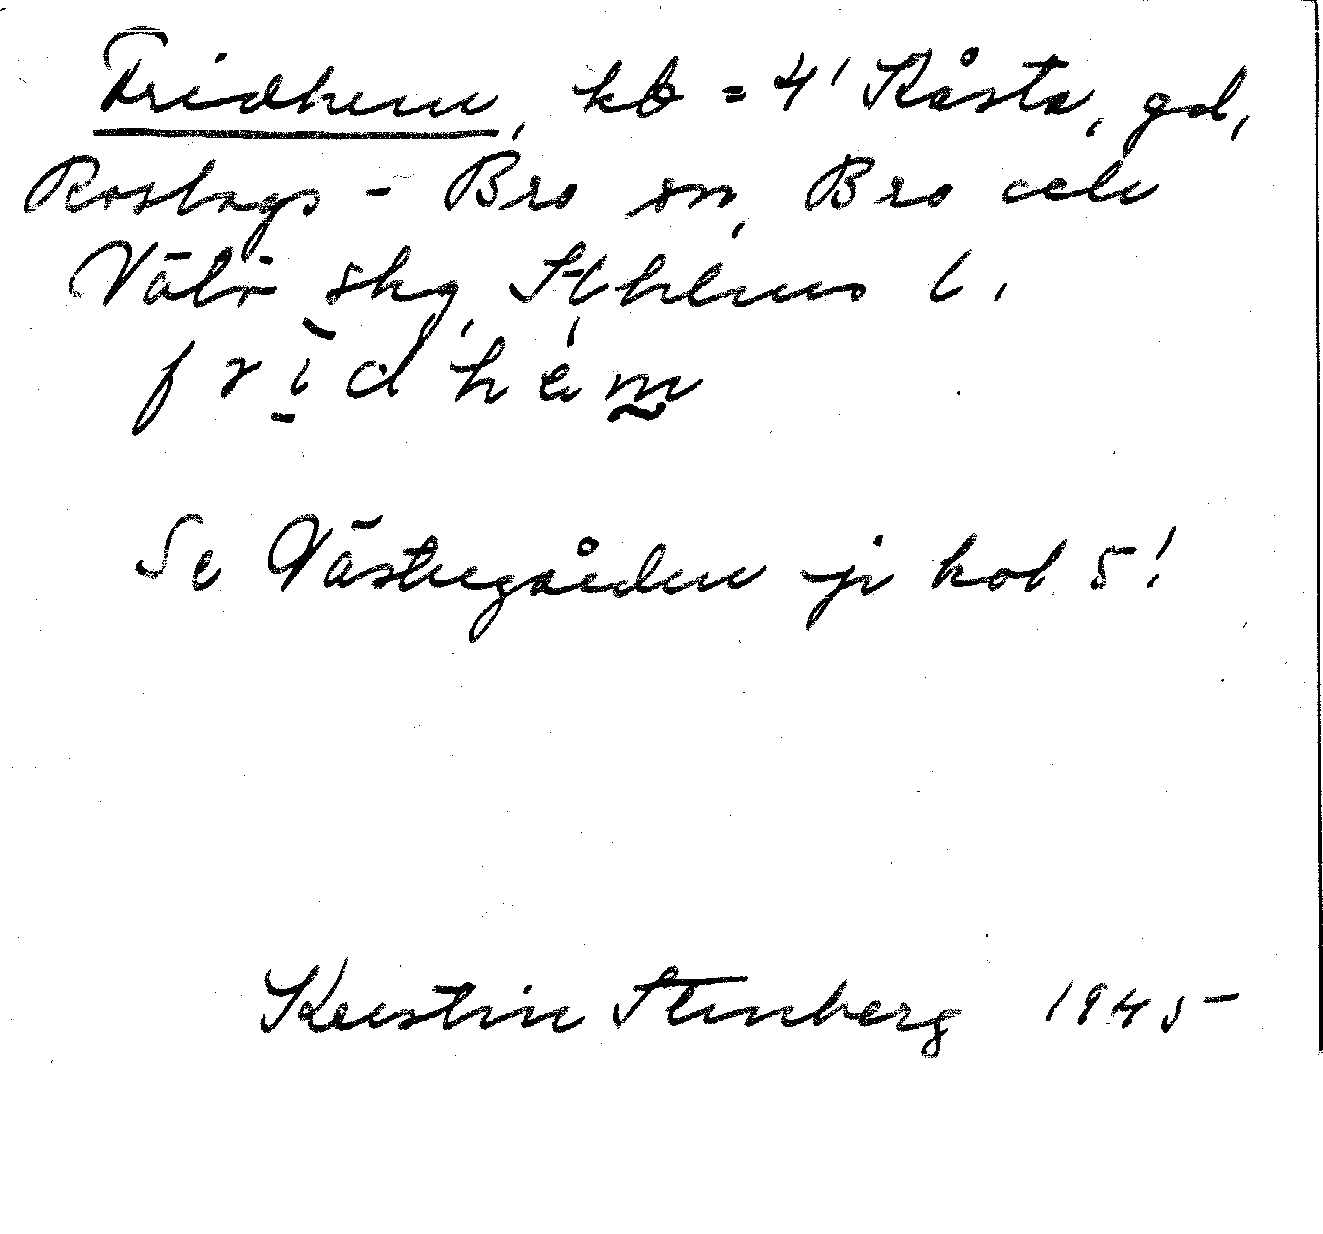 Fridhem, kb = 4' Råsta, gd,
Roslags - Bro sn, Bro och
Vätö skg, Sthlms l.
frıdhem
Se Västergården fr kol 5!
Kerstin Stenberg 1945